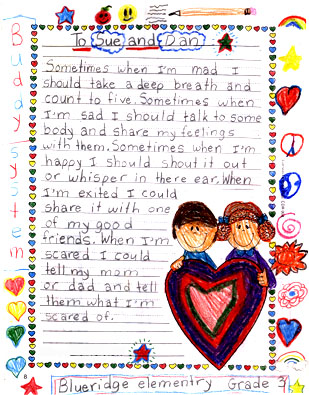 To Sue and Dan
Buddy System
Sometimes when I'm mad I
should take a deep breath and
count to five. Sometimes when
I'm sad I should talk to some
body and share my feelings
with them. Sometimes when I'm
happy I should shout it out
or whisper in there ear. When
I'm exited I could
share it with one
of my good
friends. When I'm
scared I could
tell my mom
or dad and tell
them what I'm
scared of.
Blueridge elementry Grade 3